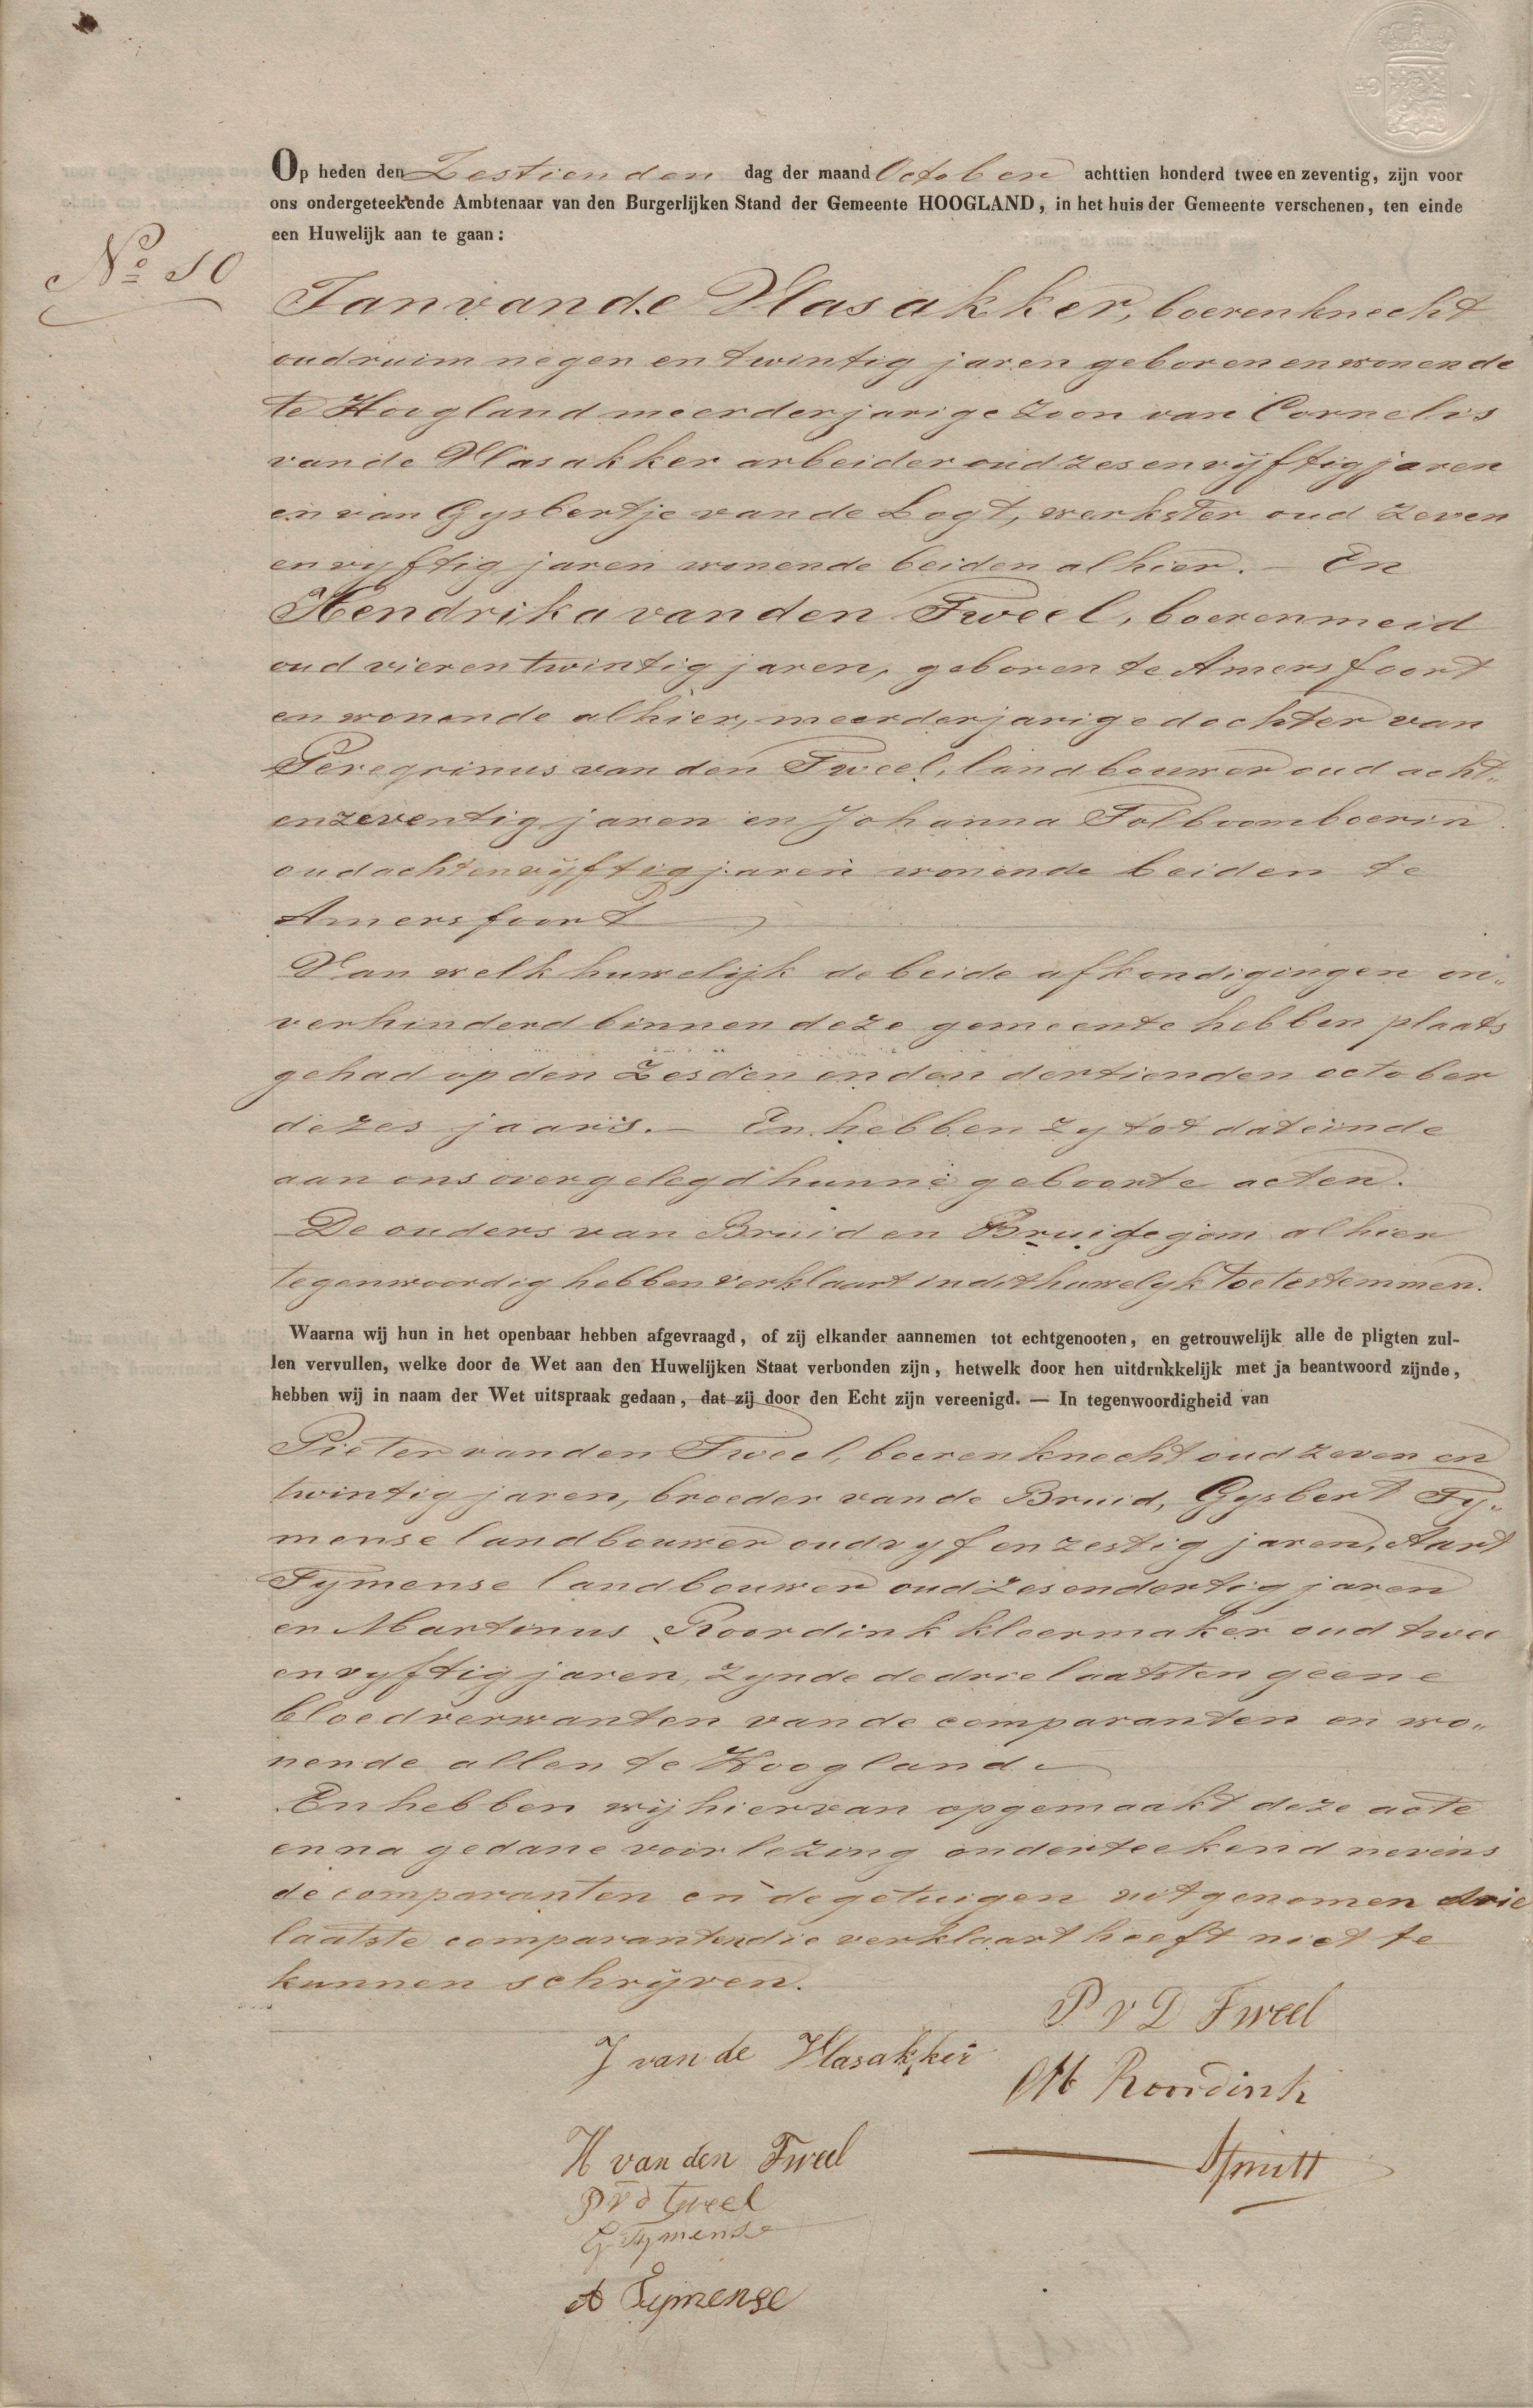 Op heden den Zestienden dag der maand October achttien honderd twee en zeventig, zijn voor
ons ondergeteekende Ambtenaar van den Burgerlijken Stand der Gemeente HOOGLAND, in het huis der Gemeente verschenen, ten einde
een Huwelijk aan te gaan:
No 10
Jan van de Vlasakker, boerenknecht
oud ruim negen en twintig jaren geboren en wonende
te Hoogland meerderjarige zoon van Cornelis
van de Vlasakker arbeider oud zes en vijftig jaren
en van Gysbertje van de Logt, werkster oud zeven
en vyftig jaren wonende beiden alhier. – En
Hendrika van den Tweel, boerenmeid
oud vier en twintig jaren, geboren te Amersfoort
en wonende alhier, meerderjarige dochter van
Peregrinus van den Tweel, landbouwer oud acht„
en zeventig jaren en Johanna Tolboom boerin
oud acht en vijftig jaren wonende beiden te
Amersfoort
Van welk huwelijk de beide afkondigingen on„
verhinderd binnen deze gemeente hebben plaats
gehad op den Zesden en den dertienden october
dezes jaars. – En hebben zy tot dat einde
aan ons overgelegd hunne geboorte acten.
De ouders van Bruid en Bruidegom alhier
tegenwoordig hebben verklaart in dit huwelyk toe te stemmen.
Waarna wij hun in het openbaar hebben afgevraagd, of zij elkander aannemen tot echtgenooten, en getrouwelijk alle de pligten zul-
len vervullen, welke door de Wet aan den Huwelijken Staat verbonden zijn, hetwelk door hen uitdrukkelijk met ja beantwoord zijnde,
hebben wij in naam der Wet uitspraak gedaan, dat zij door den Echt zijn vereenigd. — In tegenwoordigheid van
Pieter van den Tweel, boerenknecht oud zeven en
twintig jaren, broeder van de Bruid, Gysbert Ty„
mense landbouwer oud vyf en zestig jaren, Aart
Tymense landbouwer oud zes en dertig jaren
en Martinus Roordink kleermaker oud twee
en vyftig jaren, zynde de drie laatsten geene
bloedverwanten van de comparanten en wo„
nende allen te Hoogland.
En hebben wij hiervan opgemaakt deze acte
en na gedane voorlezing onderteekend nevens
de comparanten en de getuigen uitgenomen drie
laatste comparanten die verklaart heeft niet te
kunnen schrijven.
P v D Tweel
J van de Vlasakker
M Roordink
H van den Tweel
P v d tweel
G Tymense
A Tymense